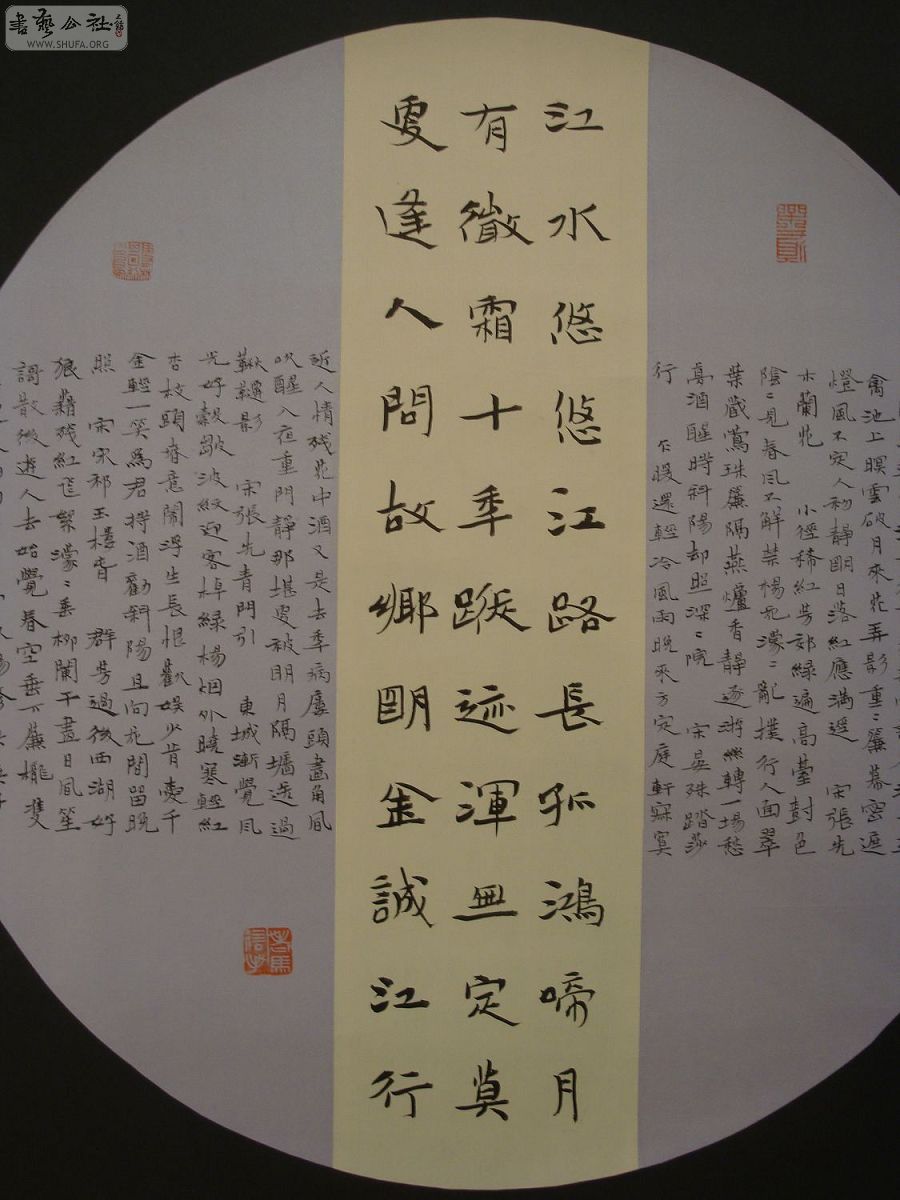 書藝公社
WWW.SHUFA.ORG
禽池上暝雲破月來花弄影重〻簾幕密遮
燈風不定人初靜明日落紅應滿逕 宋張先
木蘭花 小徑稀紅芳郊綠遍高臺封色
陰〻見春風不解禁楊花濛〻亂撲行人面翠
葉藏鶯珠簾隔燕爐香靜逐游絲轉一場愁
夢酒醒時斜陽却照深〻院 宋晏殊踏莎
行 乍暖還輕冷風雨晚來方定庭軒寂寞
江水悠悠江路長孤鴻啼月
有微霜十年蹤迹渾無定莫
更逢人問故鄉明金誠江行
近人情殘花中酒又是去年病廔頭畫角風
吹醒入夜重門靜那堪更被明月隔墻送過
鞦韆影 宋張先青門引 東城漸覺風
光好縠皺波紋迎客棹綠楊烟外曉寒輕紅
杏枝頭春意鬧浮生長恨歡娛少肯愛千
金輕一笑爲君持酒勸斜陽且向花間留晚
照 宋宋祁玉樓春 群芳過後西湖好
狼藉殘紅飛絮濛〻垂柳闌干盡日風笙
謌散後遊人去始覺春空垂下簾櫳雙